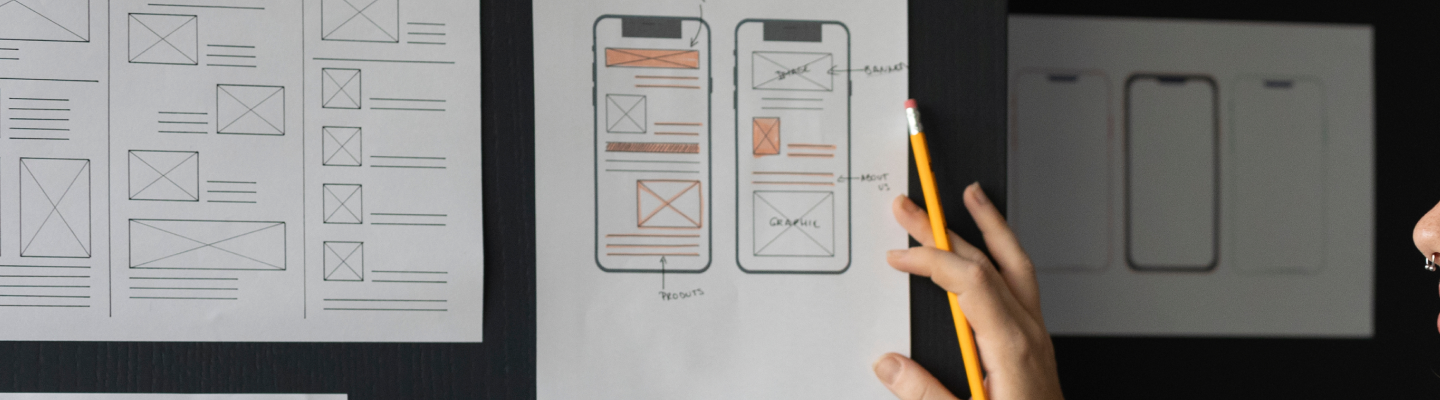 IMAGE
BANNER
ABOUT
US
GRAPHIC
PRODUTS